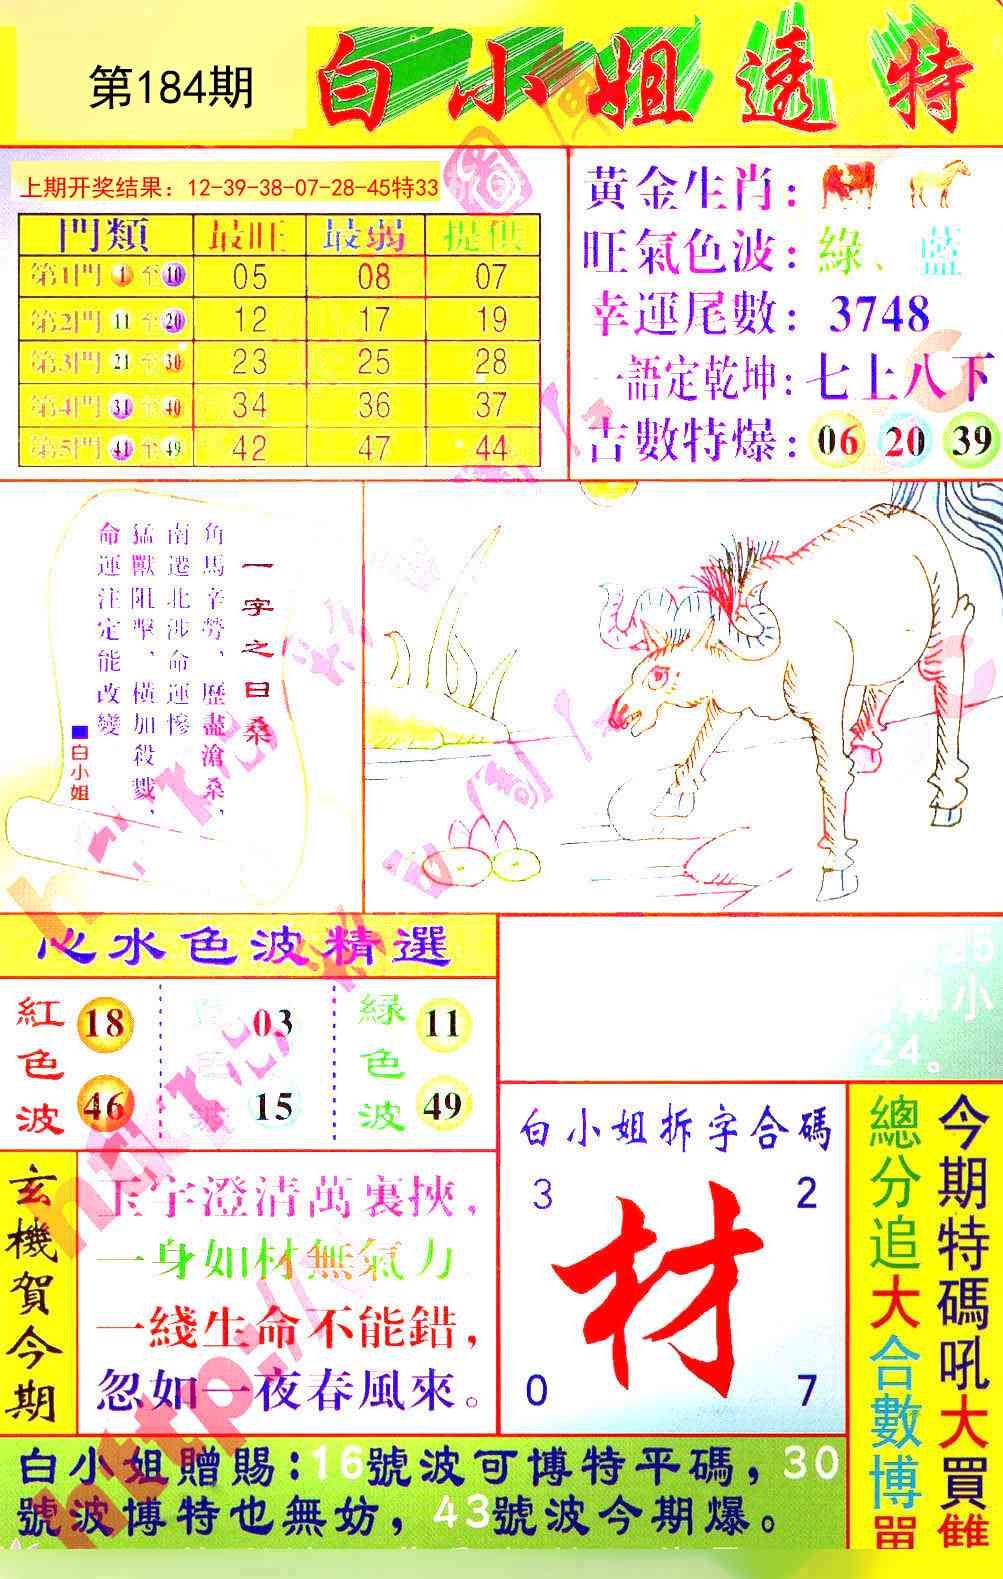 第184期
白小姐透特
上期开奖结果：12-39-38-07-28-45特33
門類 最旺 最弱 提供
第1門 1 至 10 05 08 07
第2門 11 至 20 12 17 19
第3門 21 至 30 23 25 28
第4門 31 至 40 34 36 37
第5門 41 至 49 42 47 44
黃金生肖：
旺氣色波：綠、藍
幸運尾數：3748
一語定乾坤：七上八下
吉數特爆：06 20 39
一字之曰桑
角馬辛勞、歷盡滄桑，
南遷北涉命運慘
猛獸阻擊、橫加殺戮，
命運注定能改變
■白小姐
心水色波精選
紅色波 18 46
03 15
綠色波 11 49
25
小
24。
玄機賀今期
玉宇澄清萬裏挾，
一身如材無氣力
一綫生命不能錯，
忽如一夜春風來。
白小姐拆字合碼
3 2
材
0 7
今期特碼吼大買雙
總分追大合數博單
白小姐贈賜：16號波可博特平碼，30
號波博特也無妨，43號波今期爆。